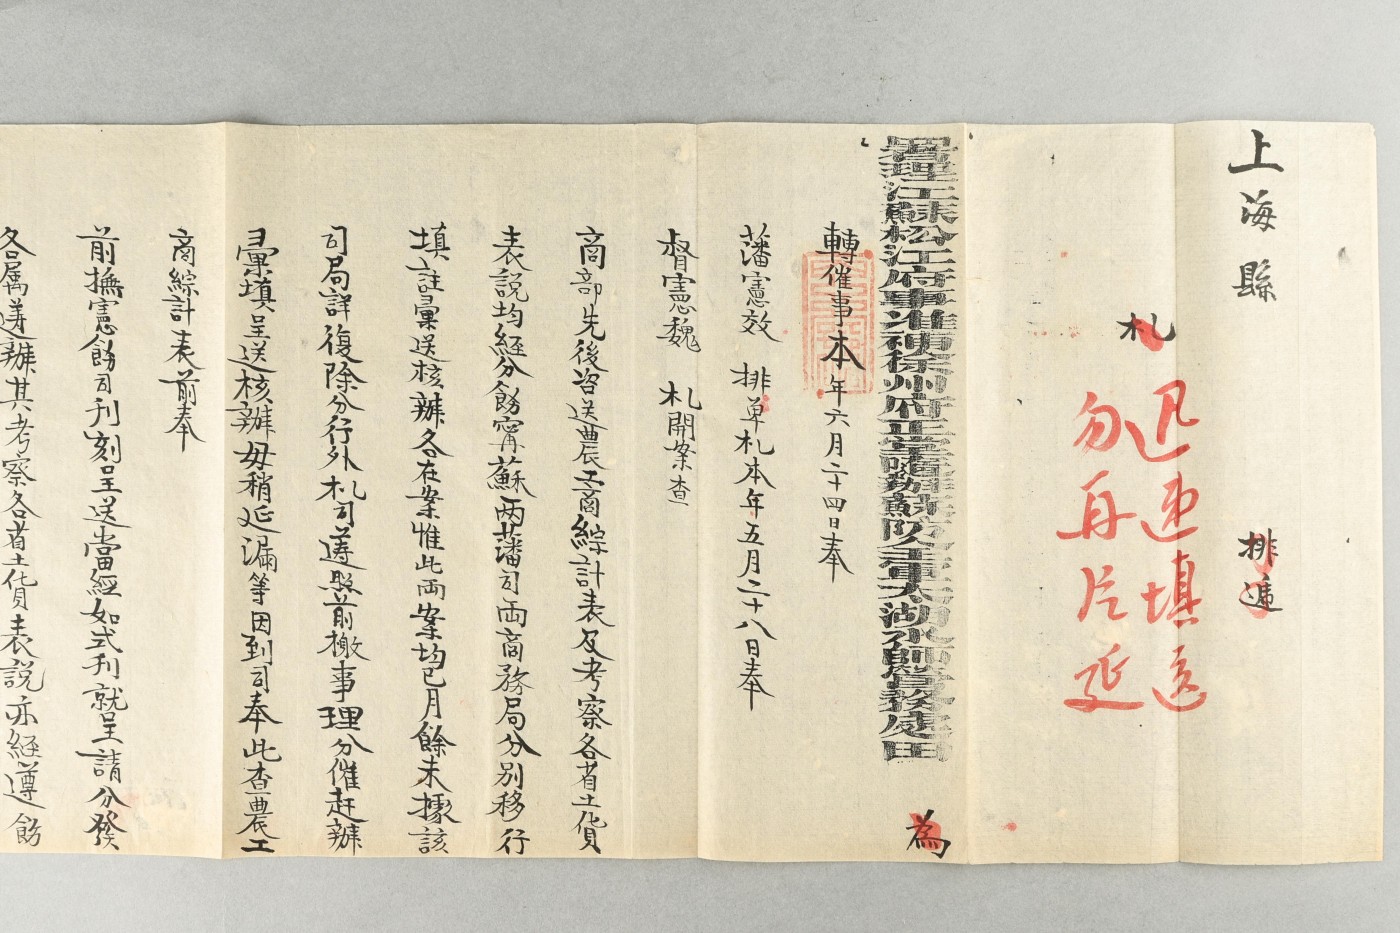 上海縣
排遞
札
迅速填送
勿再片延
署理江蘇松江府事准補徐州府正堂隨辦蘇院全軍太湖水師營務處田
為
轉催事本年六月二十四日奉
藩憲效 排單札本年五月二十八日奉
督憲魏 札開案查
商部先後咨送農工商綜計表及考察各省土貨
表說均經分飭寧蘇兩藩司兩商務局分別移行
填註彙送核辦各在案惟此兩案均已月餘未據該
司局詳復除分行外札司遵照前檄事理分催赶辦
彙填呈送核辦毋稍延漏等因到司奉此查農工
商綜計表前奉
前撫憲飭司刋刻呈送當經如式刋就呈請分發
各属遵辦其考察各省土貨表說亦經遵飭